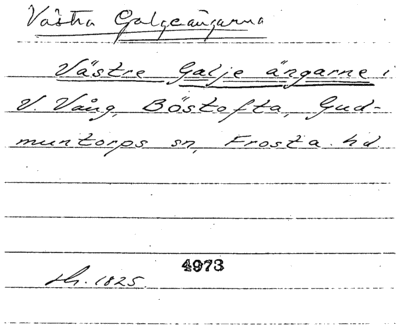 Västra Galgeängarna
Västre Galje ängarne i
V. Vång, Böstofta, Gud-
muntorps sn, Frosta hd
4973
sk. 1825.